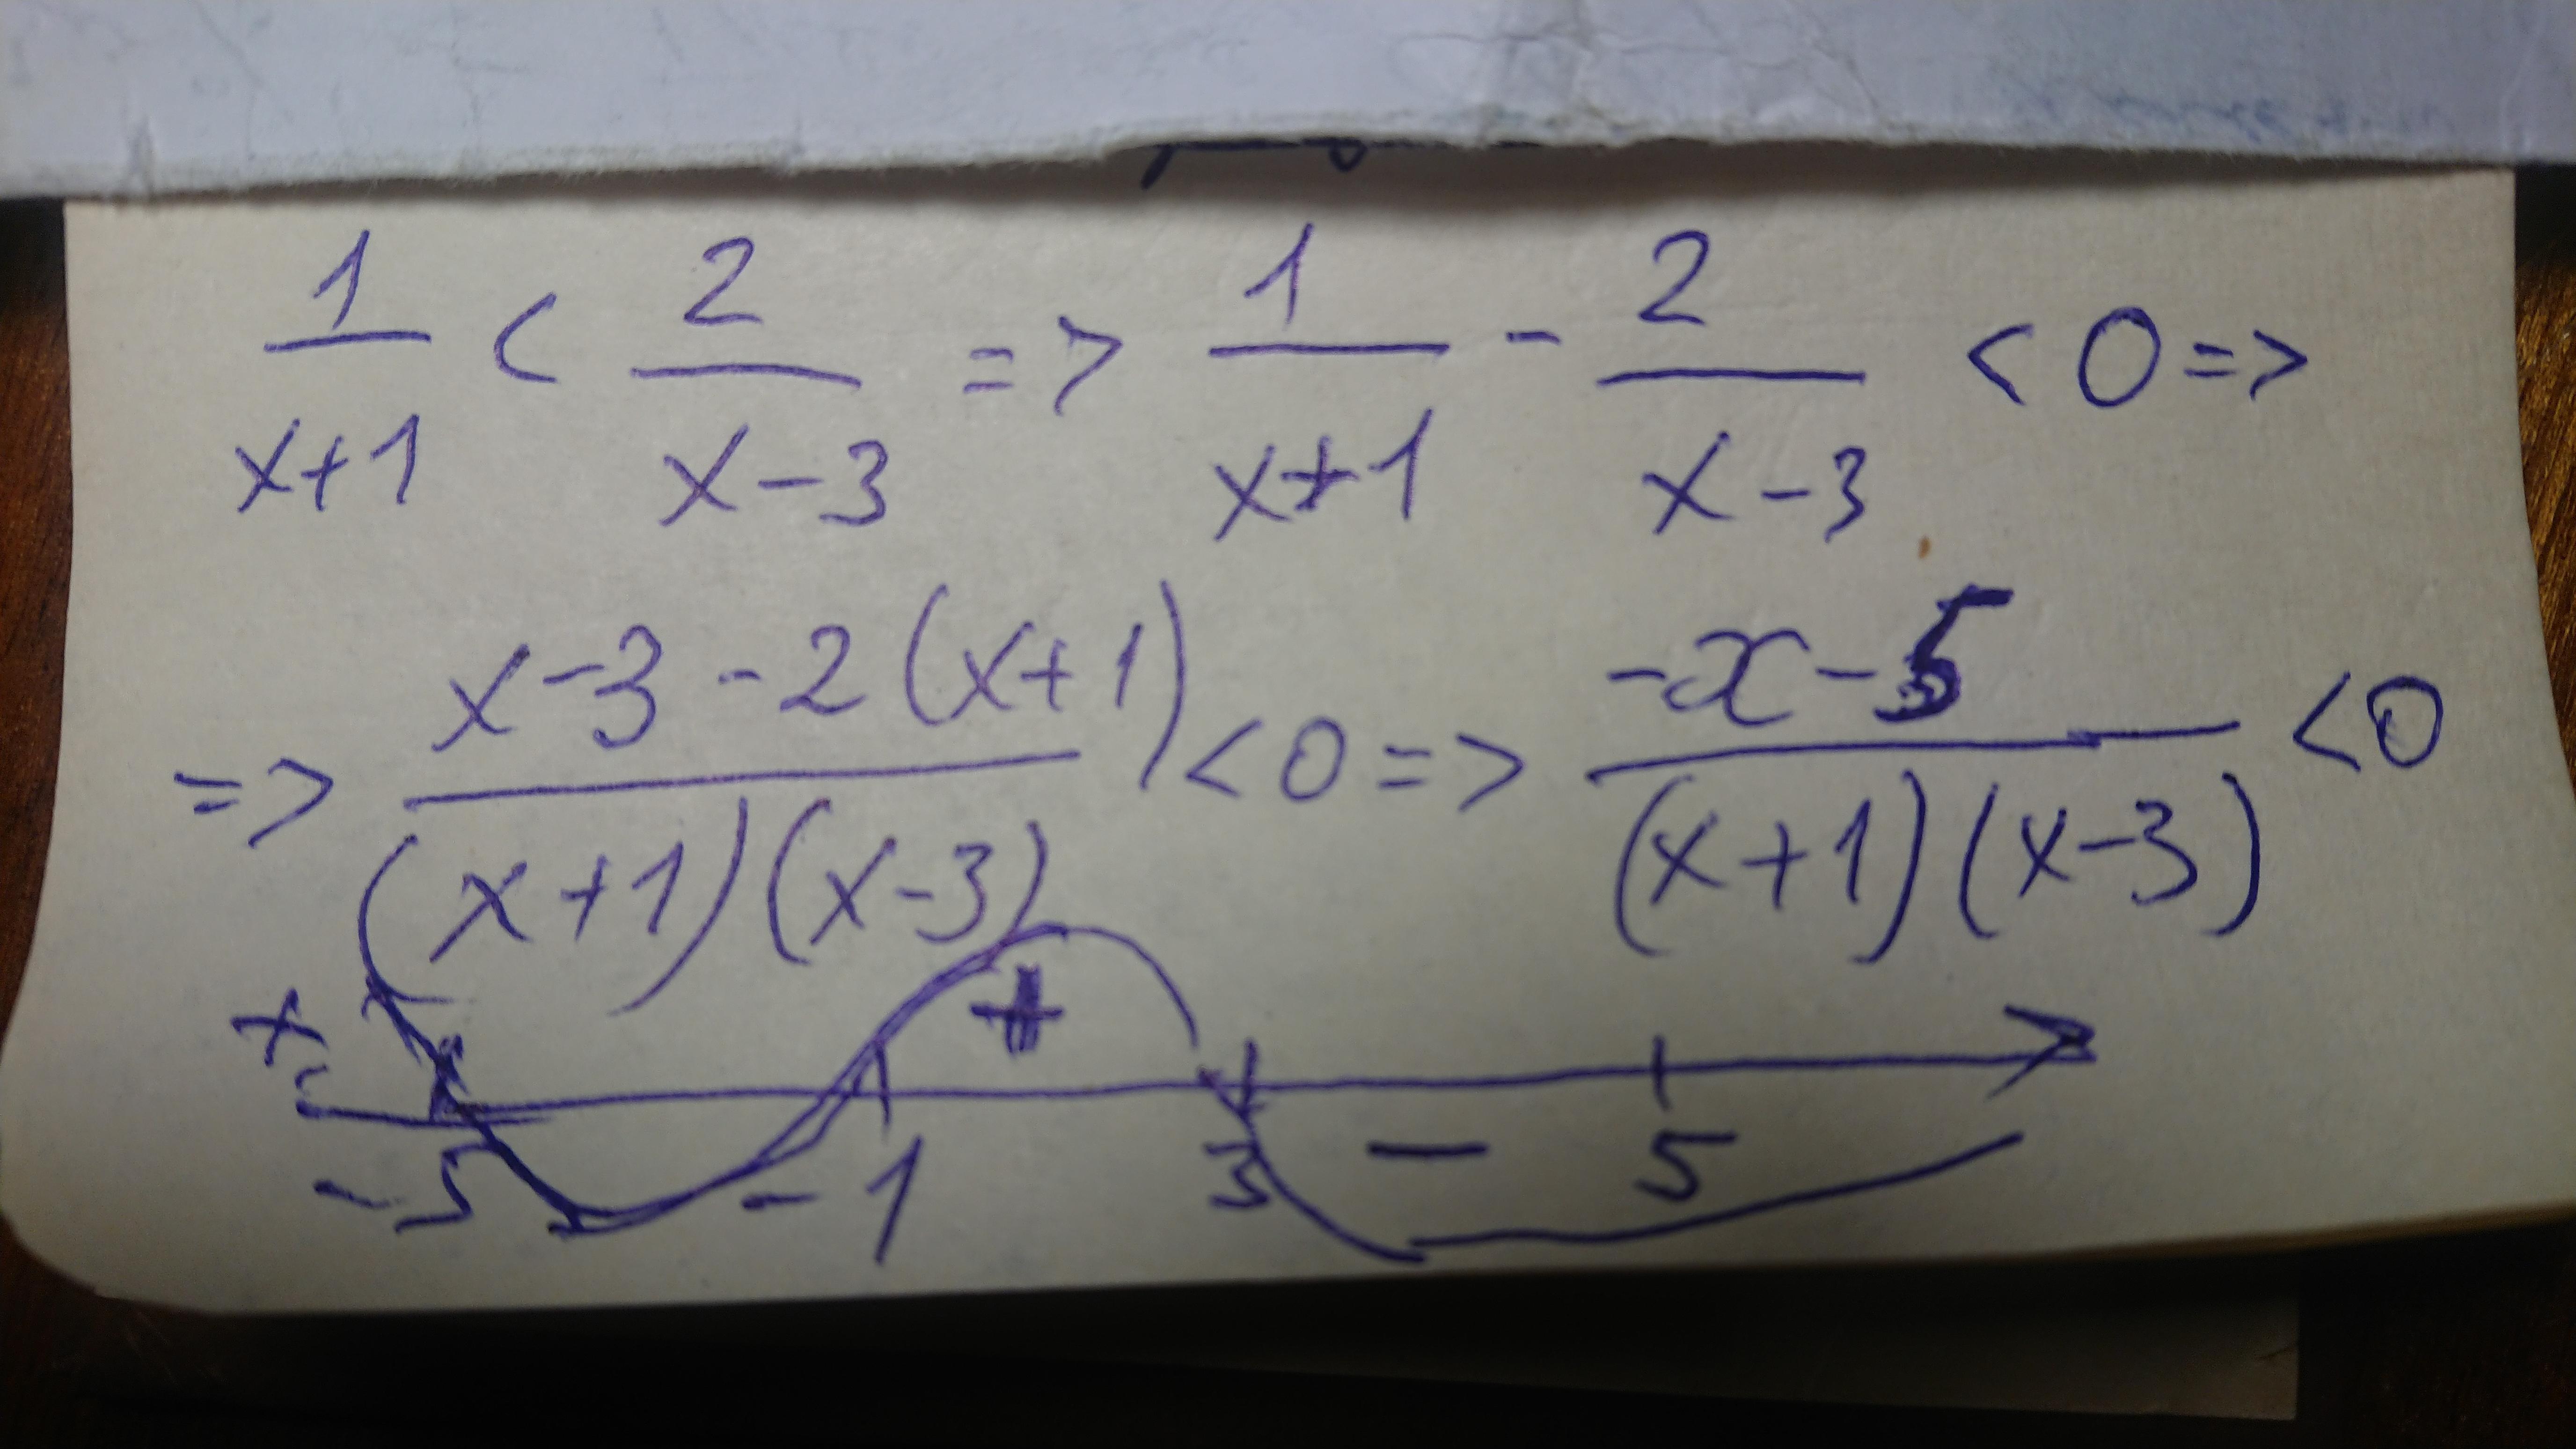 1/(x+1) < 2/(x-3) => 1/(x+1) - 2/(x-3) < 0 =>
=> (x-3-2(x+1))/((x+1)(x-3)) < 0 => (-x-5)/((x+1)(x-3)) < 0
+ -
-5 -1 3 5